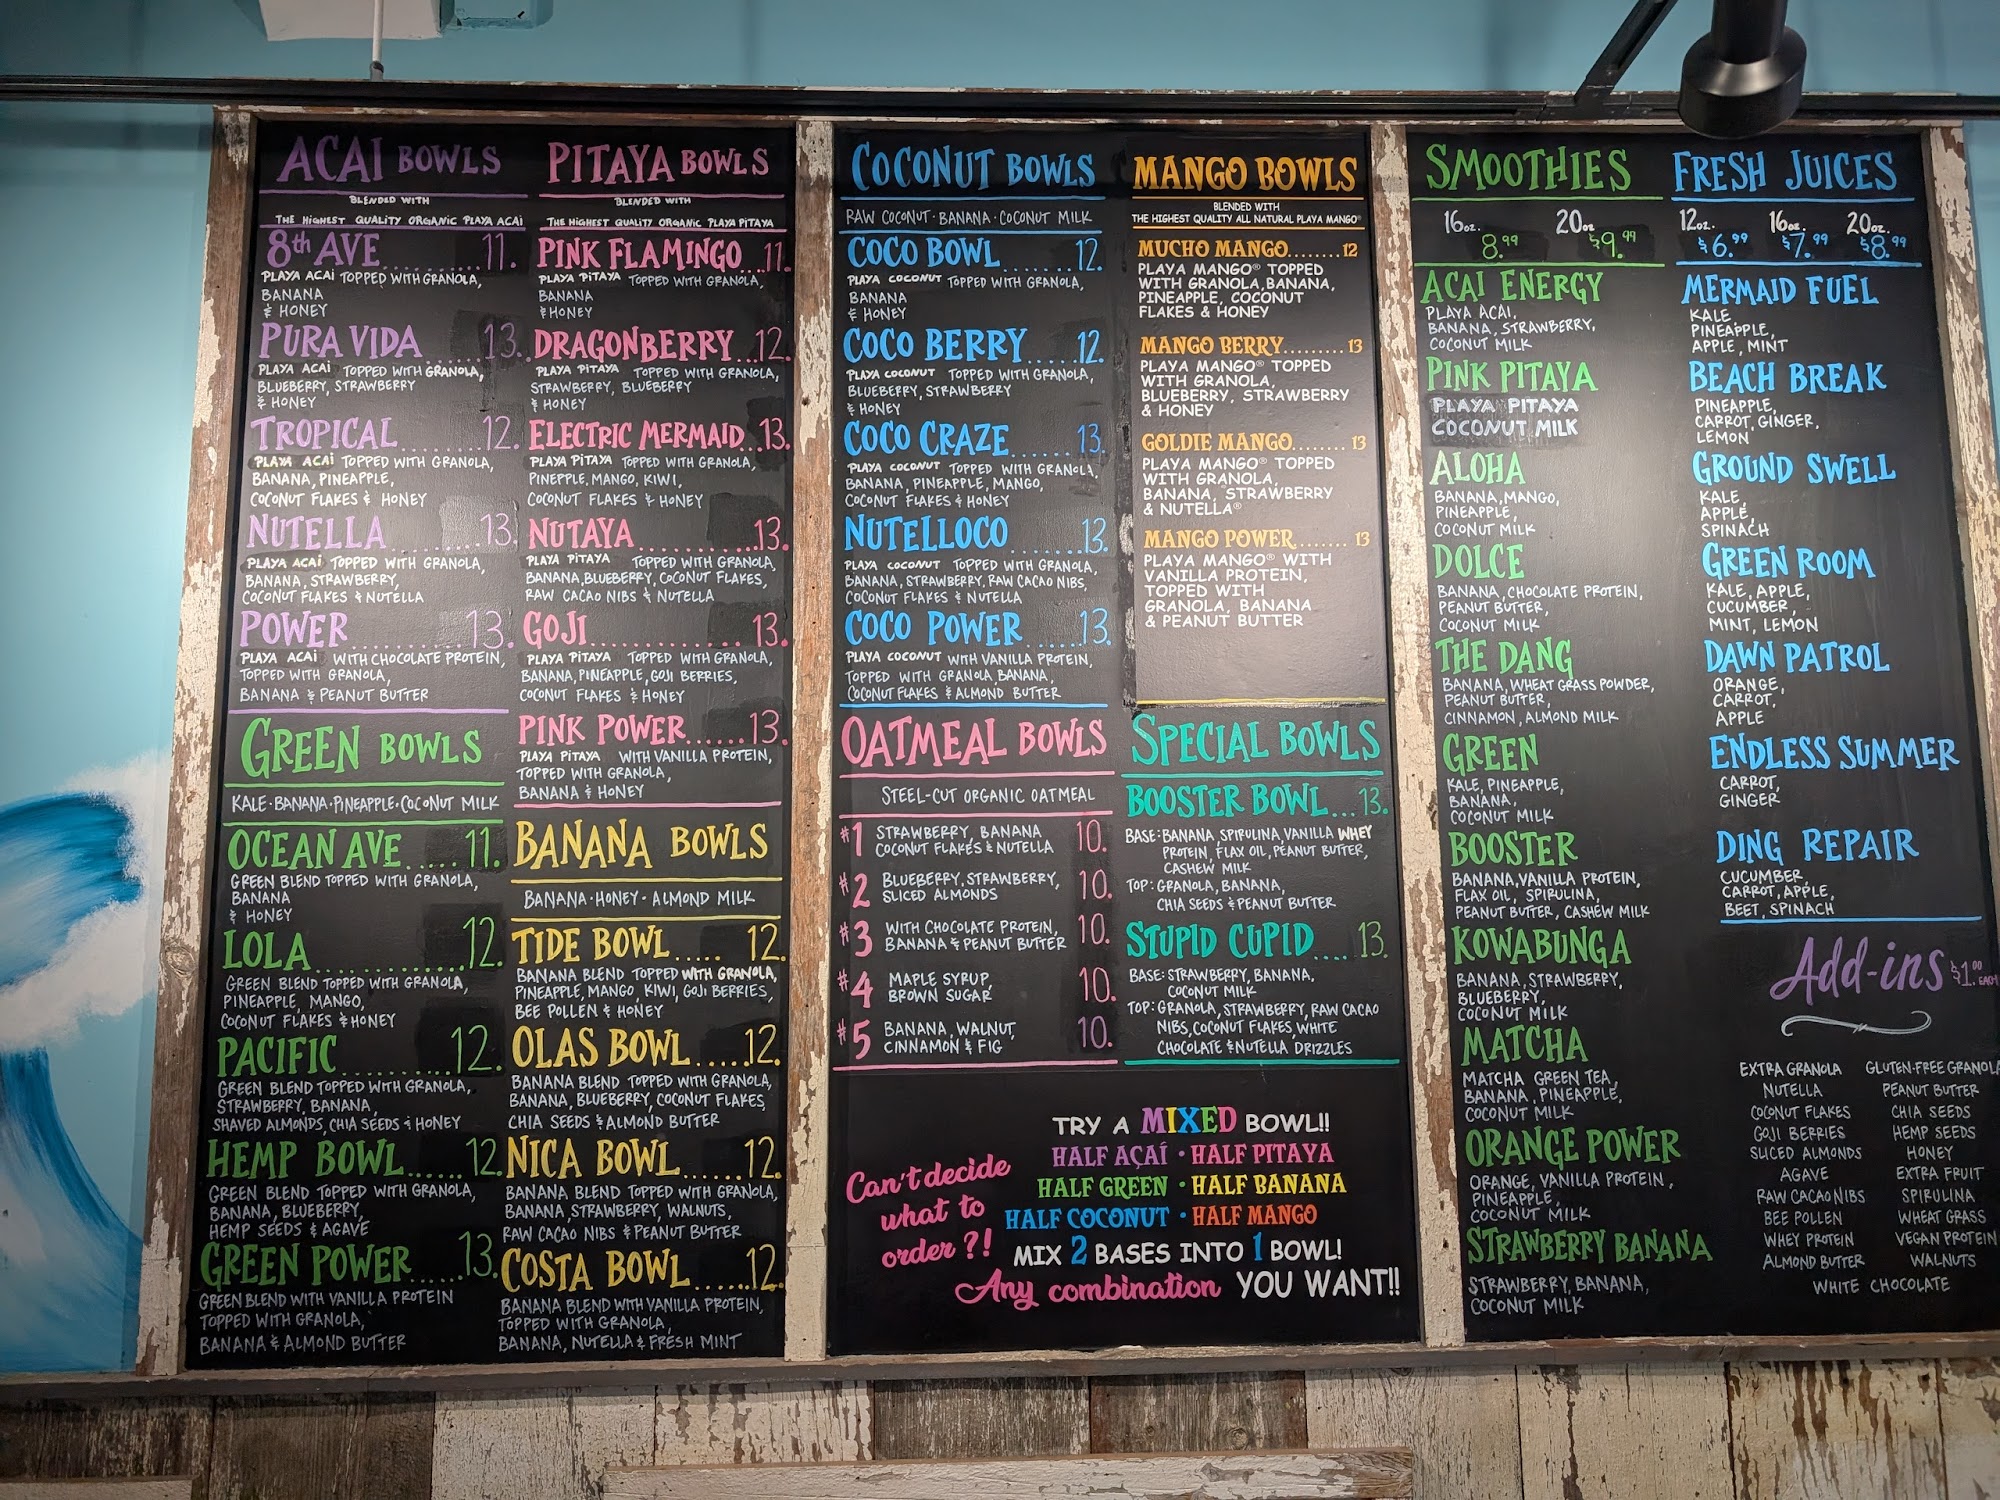 ACAI BOWLS
BLENDED WITH
THE HIGHEST QUALITY ORGANIC PLAYA ACAI
8th AVE........11.
PLAYA ACAI TOPPED WITH GRANOLA,
BANANA
& HONEY
PURA VIDA......13.
PLAYA ACAI TOPPED WITH GRANOLA,
BLUEBERRY, STRAWBERRY
& HONEY
TROPICAL........12.
PLAYA ACAI TOPPED WITH GRANOLA,
BANANA, PINEAPPLE,
COCONUT FLAKES & HONEY
NUTELLA.........13.
PLAYA ACAI TOPPED WITH GRANOLA,
BANANA, STRAWBERRY,
COCONUT FLAKES & NUTELLA
POWER...........13.
PLAYA ACAI WITH CHOCOLATE PROTEIN,
TOPPED WITH GRANOLA,
BANANA & PEANUT BUTTER
GREEN BOWLS
KALE·BANANA·PINEAPPLE·COCONUT MILK
OCEAN AVE.....11.
GREEN BLEND TOPPED WITH GRANOLA,
BANANA
& HONEY
LOLA............12.
GREEN BLEND TOPPED WITH GRANOLA,
PINEAPPLE, MANGO,
COCONUT FLAKES & HONEY
PACIFIC...........12.
GREEN BLEND TOPPED WITH GRANOLA,
STRAWBERRY, BANANA,
SHAVED ALMONDS, CHIA SEEDS & HONEY
HEMP BOWL......12.
GREEN BLEND TOPPED WITH GRANOLA,
BANANA, BLUEBERRY,
HEMP SEEDS & AGAVE
GREEN POWER.....13.
GREEN BLEND WITH VANILLA PROTEIN
TOPPED WITH GRANOLA,
BANANA & ALMOND BUTTER
PITAYA BOWLS
BLENDED WITH
THE HIGHEST QUALITY ORGANIC PLAYA PITAYA
PINK FLAMINGO..11.
PLAYA PITAYA TOPPED WITH GRANOLA,
BANANA
& HONEY
DRAGONBERRY...12.
PLAYA PITAYA TOPPED WITH GRANOLA,
STRAWBERRY, BLUEBERRY
& HONEY
ELECTRIC MERMAID..13.
PLAYA PITAYA TOPPED WITH GRANOLA,
PINEPPLE, MANGO, KIWI,
COCONUT FLAKES & HONEY
NUTAYA............13.
PLAYA PITAYA TOPPED WITH GRANOLA,
BANANA, BLUEBERRY, COCONUT FLAKES,
RAW CACAO NIBS & NUTELLA
GOJI.................13.
PLAYA PITAYA TOPPED WITH GRANOLA,
BANANA, PINEAPPLE, GOJI BERRIES,
COCONUT FLAKES & HONEY
PINK POWER.......13.
PLAYA PITAYA WITH VANILLA PROTEIN,
TOPPED WITH GRANOLA,
BANANA & HONEY
BANANA BOWLS
BANANA·HONEY·ALMOND MILK
TIDE BOWL..... 12.
BANANA BLEND TOPPED WITH GRANOLA,
PINEAPPLE, MANGO, KIWI, GOJI BERRIES,
BEE POLLEN & HONEY
OLAS BOWL.....12.
BANANA BLEND TOPPED WITH GRANOLA,
BANANA, BLUEBERRY, COCONUT FLAKES,
CHIA SEEDS & ALMOND BUTTER
NICA BOWL......12.
BANANA BLEND TOPPED WITH GRANOLA,
BANANA, STRAWBERRY, WALNUTS,
RAW CACAO NIBS & PEANUT BUTTER
COSTA BOWL......12.
BANANA BLEND WITH VANILLA PROTEIN,
TOPPED WITH GRANOLA,
BANANA, NUTELLA & FRESH MINT
COCONUT BOWLS
RAW COCONUT·BANANA·COCONUT MILK
COCO BOWL.......12.
PLAYA COCONUT TOPPED WITH GRANOLA,
BANANA
& HONEY
COCO BERRY.....12.
PLAYA COCONUT TOPPED WITH GRANOLA,
BLUEBERRY, STRAWBERRY
& HONEY
COCO CRAZE......13.
PLAYA COCONUT TOPPED WITH GRANOLA,
BANANA, PINEAPPLE, MANGO,
COCONUT FLAKES & HONEY
NUTELLOCO.......13.
PLAYA COCONUT TOPPED WITH GRANOLA,
BANANA, STRAWBERRY, RAW CACAO NIBS,
COCONUT FLAKES & NUTELLA
COCO POWER.....13.
PLAYA COCONUT WITH VANILLA PROTEIN,
TOPPED WITH GRANOLA, BANANA,
COCONUT FLAKES & ALMOND BUTTER
MANGO BOWLS
BLENDED WITH
THE HIGHEST QUALITY ALL NATURAL PLAYA MANGO®
MUCHO MANGO........12
PLAYA MANGO® TOPPED
WITH GRANOLA, BANANA,
PINEAPPLE, COCONUT
FLAKES & HONEY
MANGO BERRY.........13
PLAYA MANGO® TOPPED
WITH GRANOLA,
BLUEBERRY, STRAWBERRY
& HONEY
GOLDIE MANGO........13
PLAYA MANGO® TOPPED
WITH GRANOLA,
BANANA, STRAWBERRY
& NUTELLA®
MANGO POWER.......13
PLAYA MANGO® WITH
VANILLA PROTEIN,
TOPPED WITH
GRANOLA, BANANA
& PEANUT BUTTER
OATMEAL BOWLS
STEEL-CUT ORGANIC OATMEAL
#1 STRAWBERRY, BANANA 10.
COCONUT FLAKES & NUTELLA
#2 BLUEBERRY, STRAWBERRY, 10.
SLICED ALMONDS
#3 WITH CHOCOLATE PROTEIN, 10.
BANANA & PEANUT BUTTER
#4 MAPLE SYRUP, 10.
BROWN SUGAR
#5 BANANA, WALNUT, 10.
CINNAMON & FIG
SPECIAL BOWLS
BOOSTER BOWL...13.
BASE: BANANA, SPIRULINA, VANILLA WHEY
PROTEIN, FLAX OIL, PEANUT BUTTER,
CASHEW MILK
TOP: GRANOLA, BANANA,
CHIA SEEDS & PEANUT BUTTER
STUPID CUPID....13.
BASE: STRAWBERRY, BANANA,
COCONUT MILK
TOP: GRANOLA, STRAWBERRY, RAW CACAO
NIBS, COCONUT FLAKES, WHITE
CHOCOLATE & NUTELLA DRIZZLES
Can't decide
what to
order?!
TRY A MIXED BOWL!!
HALF AÇAÍ · HALF PITAYA
HALF GREEN · HALF BANANA
HALF COCONUT · HALF MANGO
MIX 2 BASES INTO 1 BOWL!
Any combination YOU WANT!!
SMOOTHIES
16oz. 20oz
8.99 $9.99
ACAI ENERGY
PLAYA ACAI,
BANANA, STRAWBERRY,
COCONUT MILK
PINK PITAYA
PLAYA PITAYA
COCONUT MILK
ALOHA
BANANA, MANGO,
PINEAPPLE,
COCONUT MILK
DOLCE
BANANA, CHOCOLATE PROTEIN,
PEANUT BUTTER,
COCONUT MILK
THE DANG
BANANA, WHEAT GRASS POWDER,
PEANUT BUTTER,
CINNAMON, ALMOND MILK
GREEN
KALE, PINEAPPLE,
BANANA,
COCONUT MILK
BOOSTER
BANANA, VANILLA PROTEIN,
FLAX OIL, SPIRULINA,
PEANUT BUTTER, CASHEW MILK
KOWABUNGA
BANANA, STRAWBERRY,
BLUEBERRY,
COCONUT MILK
MATCHA
MATCHA GREEN TEA,
BANANA, PINEAPPLE,
COCONUT MILK
ORANGE POWER
ORANGE, VANILLA PROTEIN,
PINEAPPLE,
COCONUT MILK
STRAWBERRY BANANA
STRAWBERRY, BANANA,
COCONUT MILK
FRESH JUICES
12oz. 16oz. 20oz.
$6.99 $7.99 $8.99
MERMAID FUEL
KALE
PINEAPPLE,
APPLE, MINT
BEACH BREAK
PINEAPPLE,
CARROT, GINGER,
LEMON
GROUND SWELL
KALE,
APPLE,
SPINACH
GREEN ROOM
KALE, APPLE,
CUCUMBER,
MINT, LEMON
DAWN PATROL
ORANGE,
CARROT,
APPLE
ENDLESS SUMMER
CARROT,
GINGER
DING REPAIR
CUCUMBER,
CARROT, APPLE,
BEET, SPINACH
Add-ins $1.00 EACH
EXTRA GRANOLA GLUTEN-FREE GRANOLA
NUTELLA PEANUT BUTTER
COCONUT FLAKES CHIA SEEDS
GOJI BERRIES HEMP SEEDS
SLICED ALMONDS HONEY
AGAVE EXTRA FRUIT
RAW CACAO NIBS SPIRULINA
BEE POLLEN WHEAT GRASS
WHEY PROTEIN VEGAN PROTEIN
ALMOND BUTTER WALNUTS
WHITE CHOCOLATE